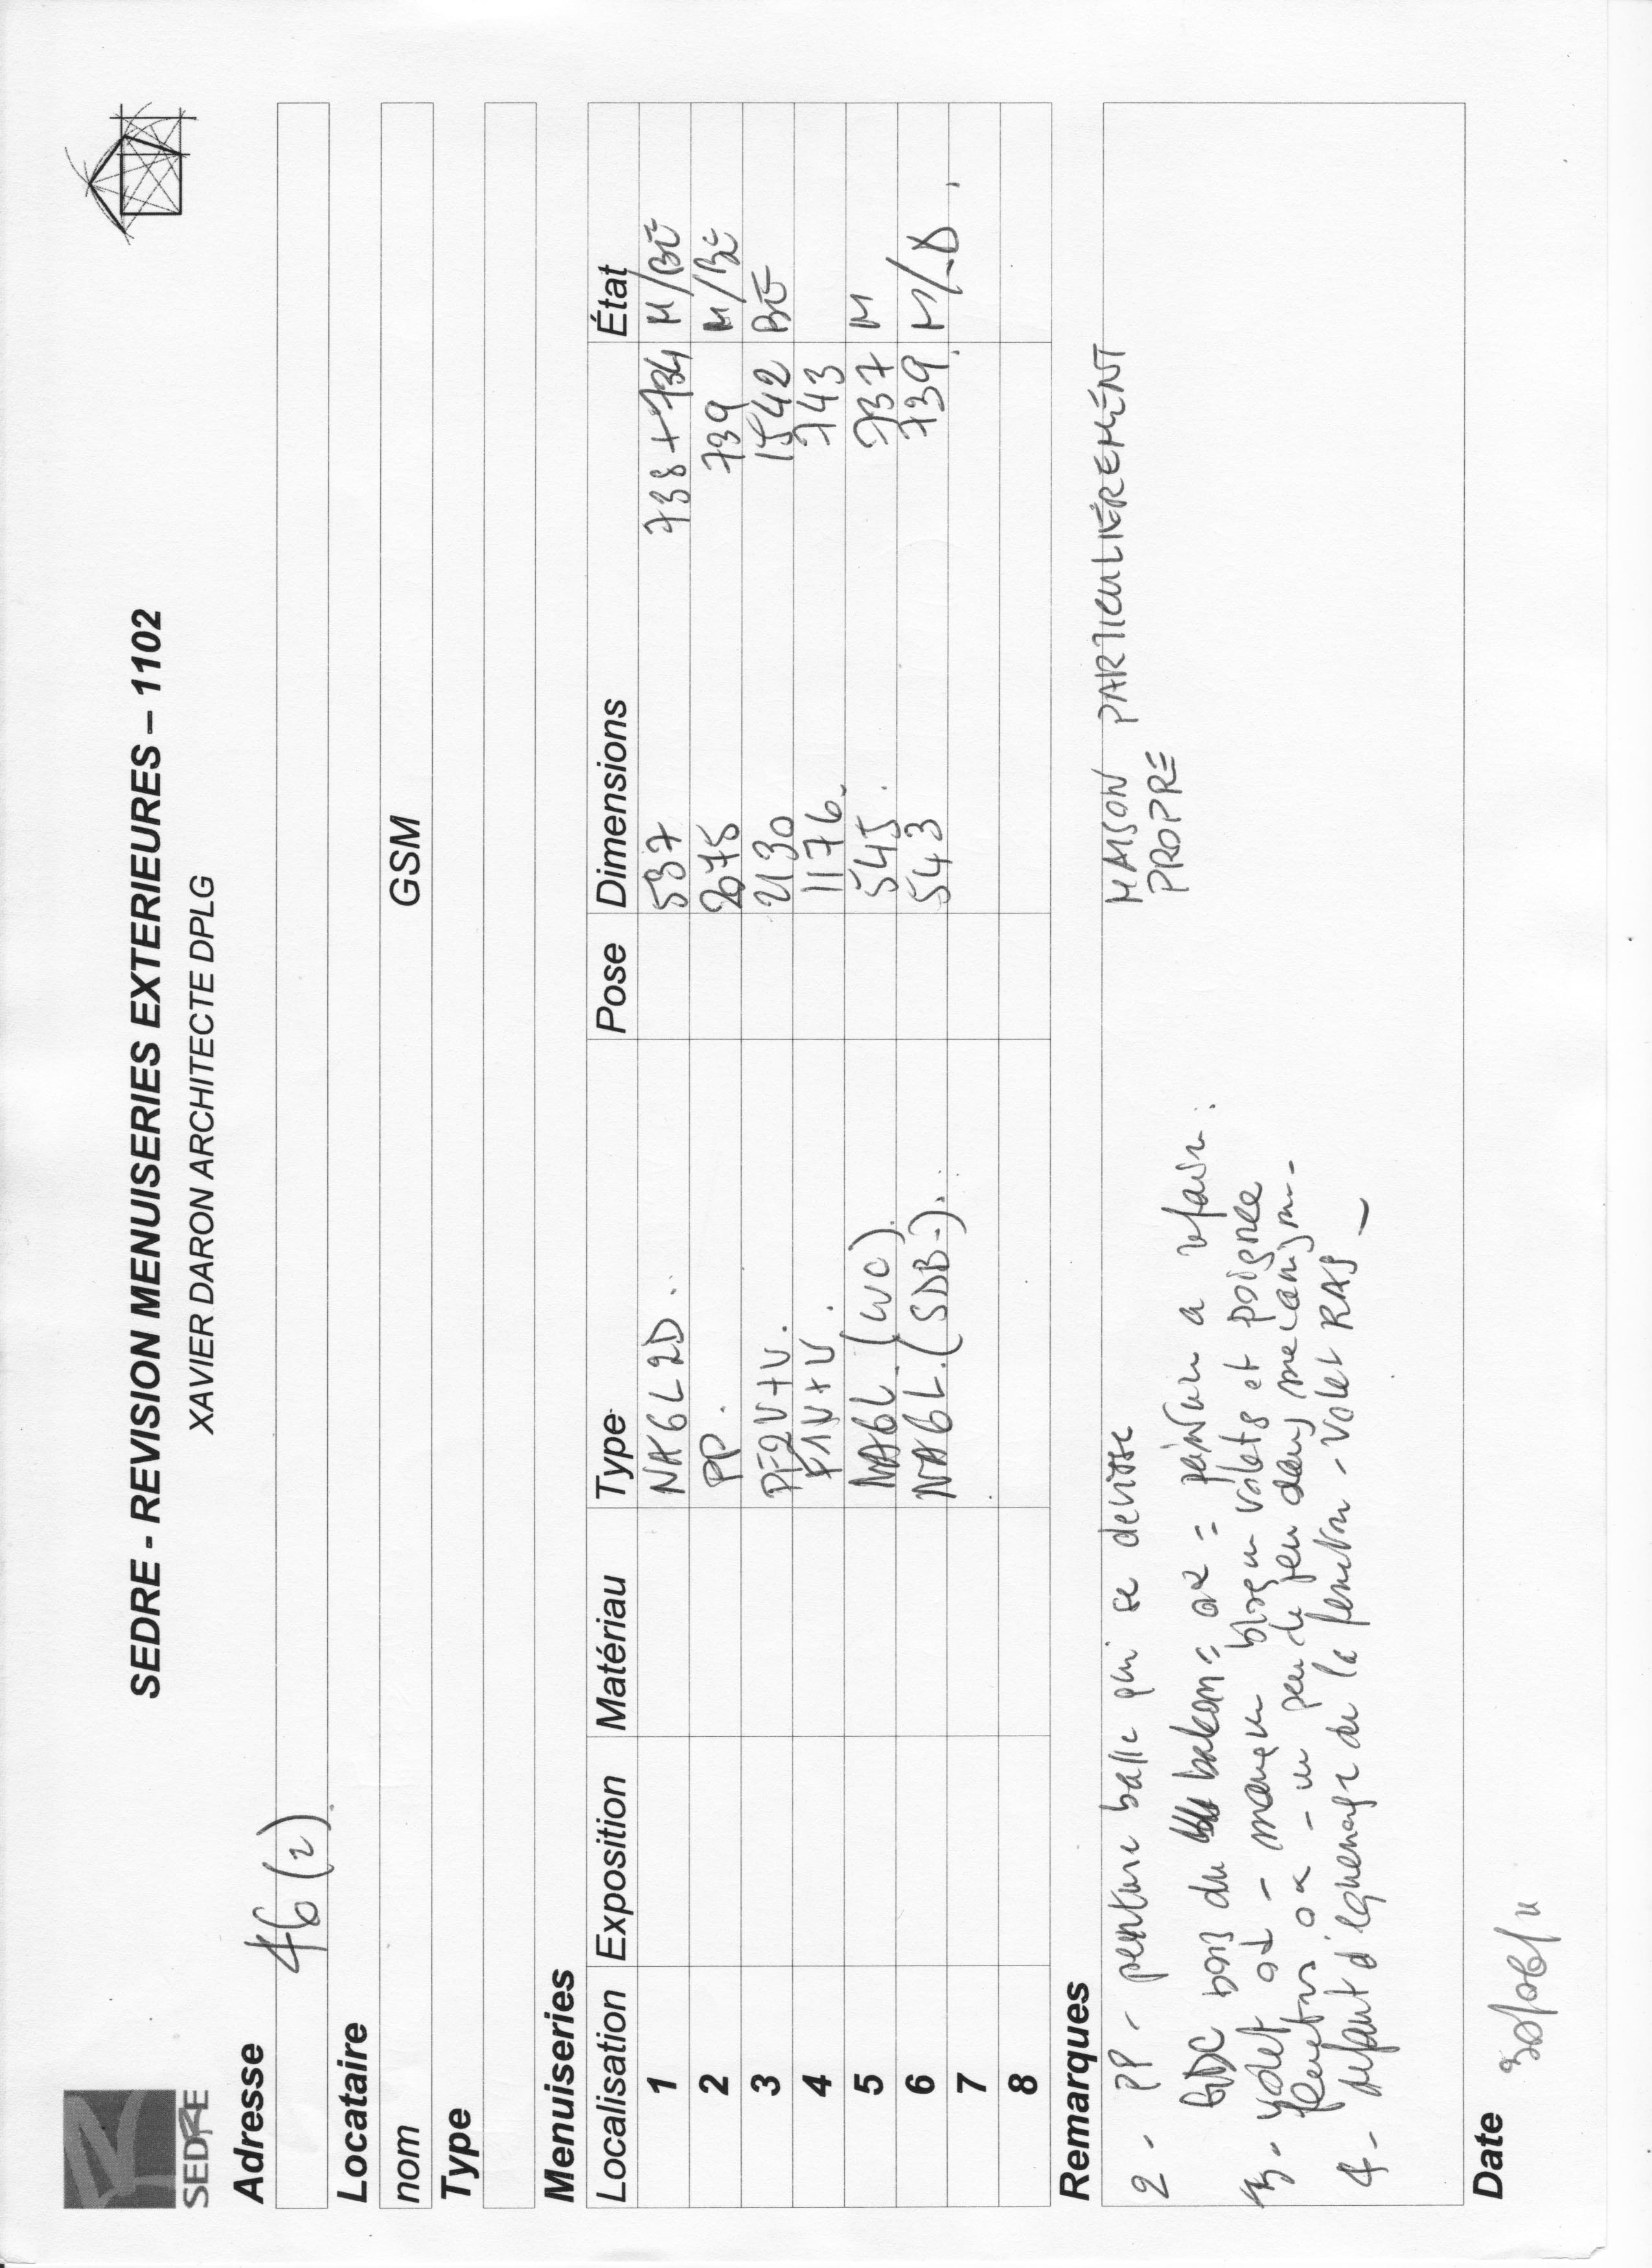 SEDRE
SEDRE - REVISION MENUISERIES EXTERIEURES – 1102
XAVIER DARON ARCHITECTE DPLG
Adresse
46 (2)
Locataire
nom GSM
Type
Menuiseries
Localisation Exposition Matériau Type Pose Dimensions État
1 NA6L2D. 537 738+734 M/BE
2 PP. 739 M/BE
3 PF2V+V. 2130 1542 BE
4 F1V+V. 1176 743
5 NA6L (WC). 545. 737 M
6 NA6L (SDB). 543 739. M/D.
7
8
Remarques
MAISON PARTICULIÈREMENT
PROPRE
2 - PP - penture basse qui se devisse
GDC bois du balcon = ok = peinture a refaire.
3 - volet ok - manque volets et poignee
fenetres ok - un peu de jeu dans mecanisme.
4 - defaut d'equerrage de la fenetre - volet RAS -
Date